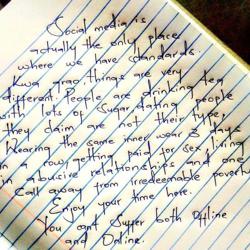 Social media is
actually the only place
where we have standards.
Kwa grao, things are very
different. People are drinking tea
with lots of sugar, dating people
they claim are not their type,
Wearing the same inner wear 3 days
in row, getting paid for sex, living
in abusive relationships and one
call away from irredeemable poverty
Enjoy your time here.
You can't Suffer both Offline
and Online.